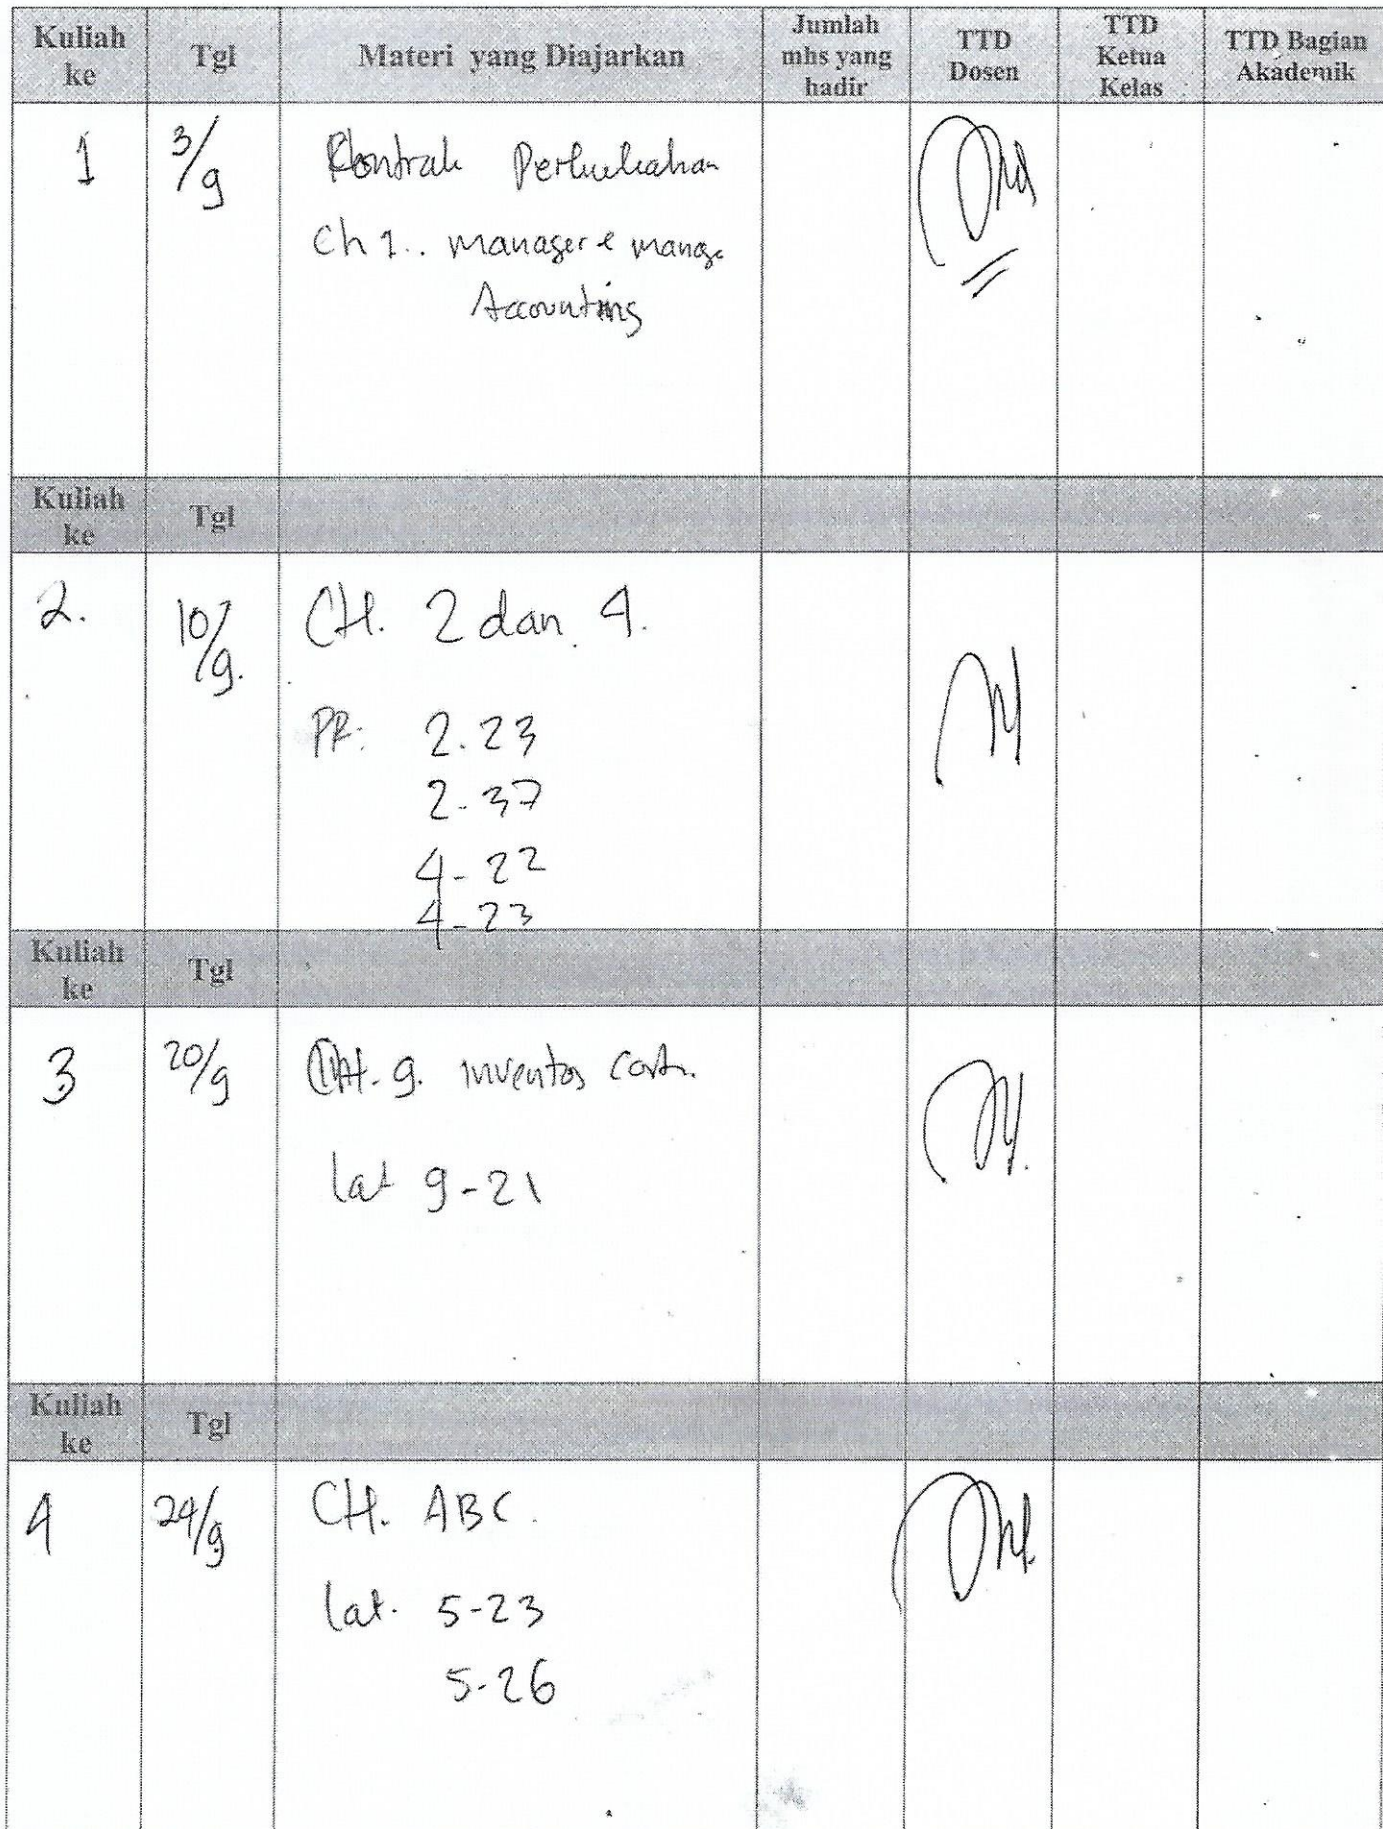 Kuliah ke Tgl Materi yang Diajarkan Jumlah mhs yang hadir TTD Dosen TTD Ketua Kelas TTD Bagian Akademik
1 3/9 Kontrak Perkuliahan
Ch 1.. manager &
Accounting
Kuliah ke Tgl
2. 10/9. CH. 2 dan 4.
PR: 2.23
2-37
4-22
4-23
Kuliah ke Tgl
3 20/9 CH. 9.
lat 9-21
Kuliah ke Tgl
4 24/9 CH. ABC.
lat. 5-23
5-26